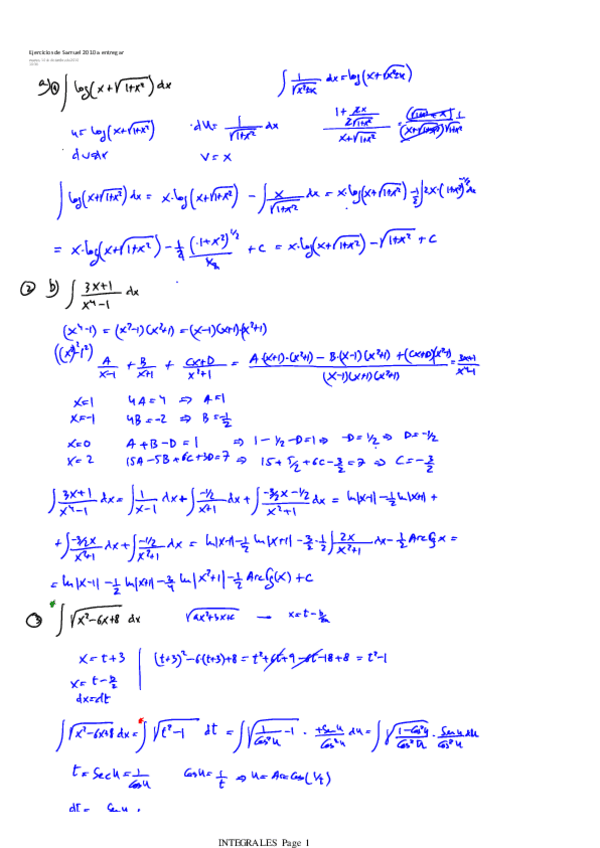 Ejercicios de Samuel 2010 a entregar
a) ① ∫ log(x+√(1+x²)) dx
∫ 1/√(x²±1) dx = log(x+√(x²±1))
u = log(x+√(1+x²)) · du = 1/√(1+x²) dx
dv = dx v = x
∫ log(x+√(1+x²)) dx = x·log(x+√(1+x²)) − ∫ x/√(1+x²) dx = x·log(x+√(1+x²)) − 1/2 ∫ 2x·(1+x²)^(-1/2) dx
= x·log(x+√(1+x²)) − 1/2 (1+x²)^(1/2)/(1/2) + C = x·log(x+√(1+x²)) − √(1+x²) + C
② b) ∫ (3x+1)/(x⁴−1) dx
(x⁴−1) = (x²−1)(x²+1) = (x−1)(x+1)(x²+1)
A/(x−1) + B/(x+1) + (Cx+D)/(x²+1) = (A·(x+1)·(x²+1) − B·(x−1)(x²+1) + (Cx+D)(x²−1))/((x−1)(x+1)(x²+1)) = (3x+1)/(x⁴−1)
x=1 4A=4 ⇒ A=1
x=−1 4B=−2 ⇒ B=−1/2
x=0 A+B−D=1 ⇒ 1−1/2−D=1 ⇒ −D=1/2 ⇒ D=−1/2
x=2 15A−5B+6C+3D=7 ⇒ 15+5/2+6C−3/2=7 ⇒ C=−3/2
∫ (3x+1)/(x⁴−1) dx = ∫ 1/(x−1) dx + ∫ (−1/2)/(x+1) dx + ∫ (−3/2x−1/2)/(x²+1) dx = ln|x−1| − 1/2 ln|x+1| +
+ ∫ (−3/2x)/(x²+1) dx + ∫ (−1/2)/(x²+1) dx = ln|x−1| − 1/2 ln|x+1| − 3/2·1/2 ∫ 2x/(x²+1) dx − 1/2 Arc tg x =
= ln|x−1| − 1/2 ln|x+1| − 3/4 ln|x²+1| − 1/2 Arc tg(x) + C
③ ∫ √(x²−6x+8) dx √(ax²+bx+c) → x=t−b/2a
x = t+3 (t+3)²−6(t+3)+8 = t²+6t+9−6t−18+8 = t²−1
x = t−b/2
dx=dt
∫ √(x²−6x+8) dx = ∫ √(t²−1) dt = ∫ √(1/cos²u −1) · +sen u/cos²u du = ∫ √((1−cos²u)/cos²u) · sen u du/cos²u
t = sec u = 1/cos u cos u = 1/t ⇒ u = Arc cos(1/t)
dt = sen u
INTEGRALES Page 1